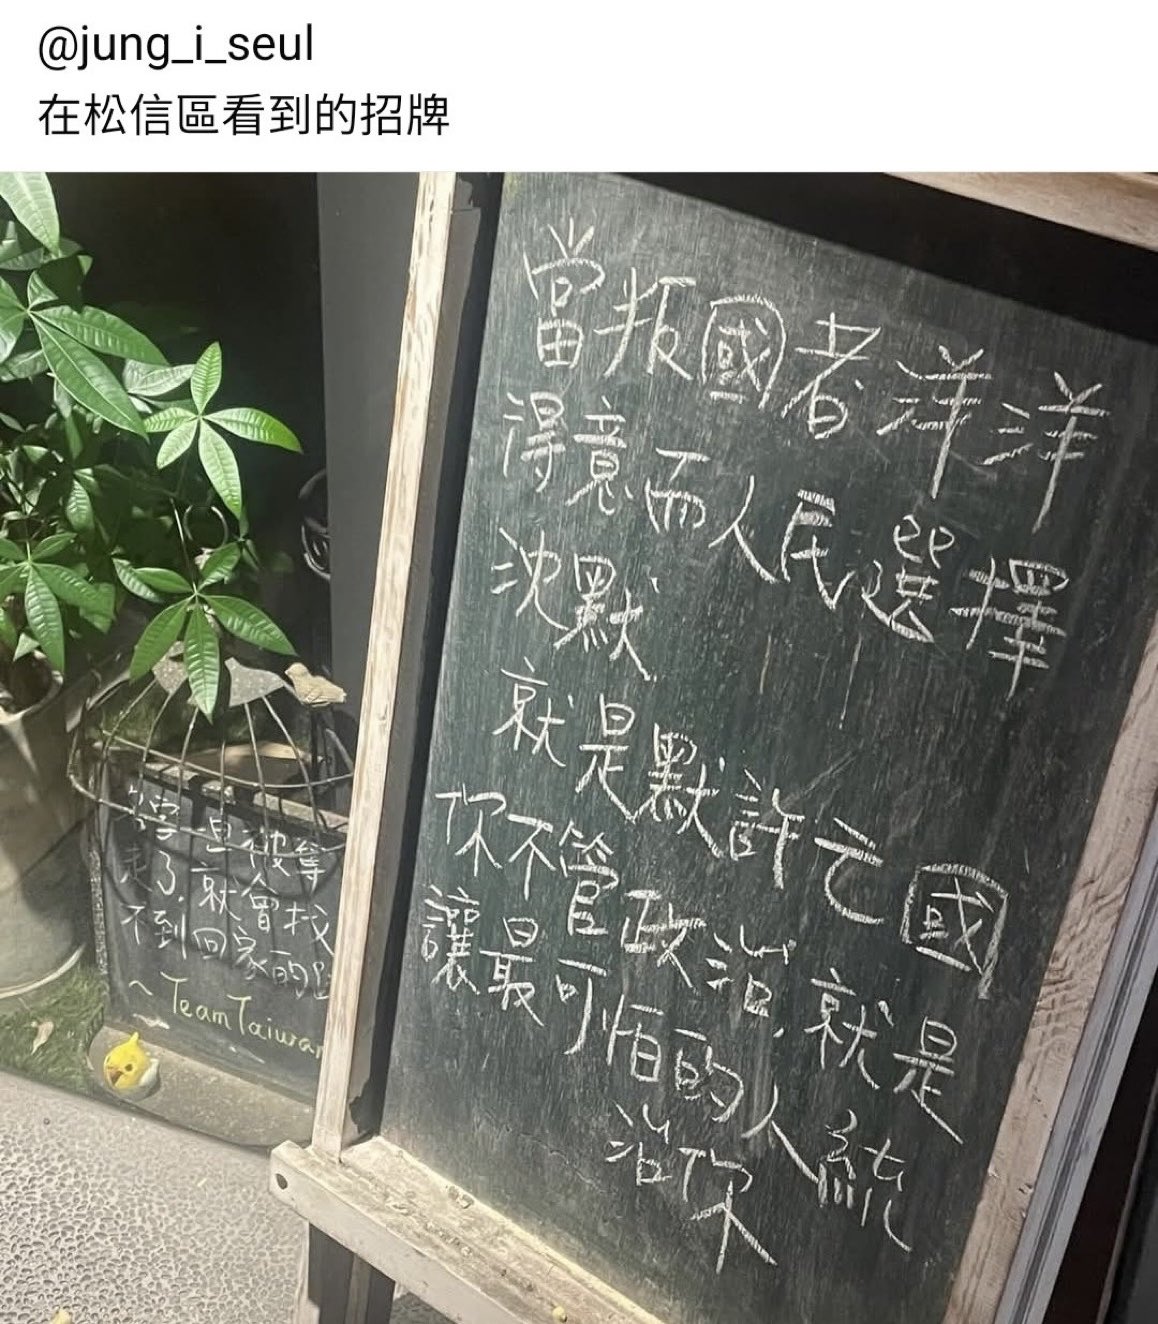 @jung_i_seul
在松信區看到的招牌
當叛國者洋洋
得意而人民選擇
沈默
就是默許亡國
你不管政治,就是
讓最可怕的人統
治你
當家一旦被奪
走了,就會找
不到回家的路
~TeamTaiwan